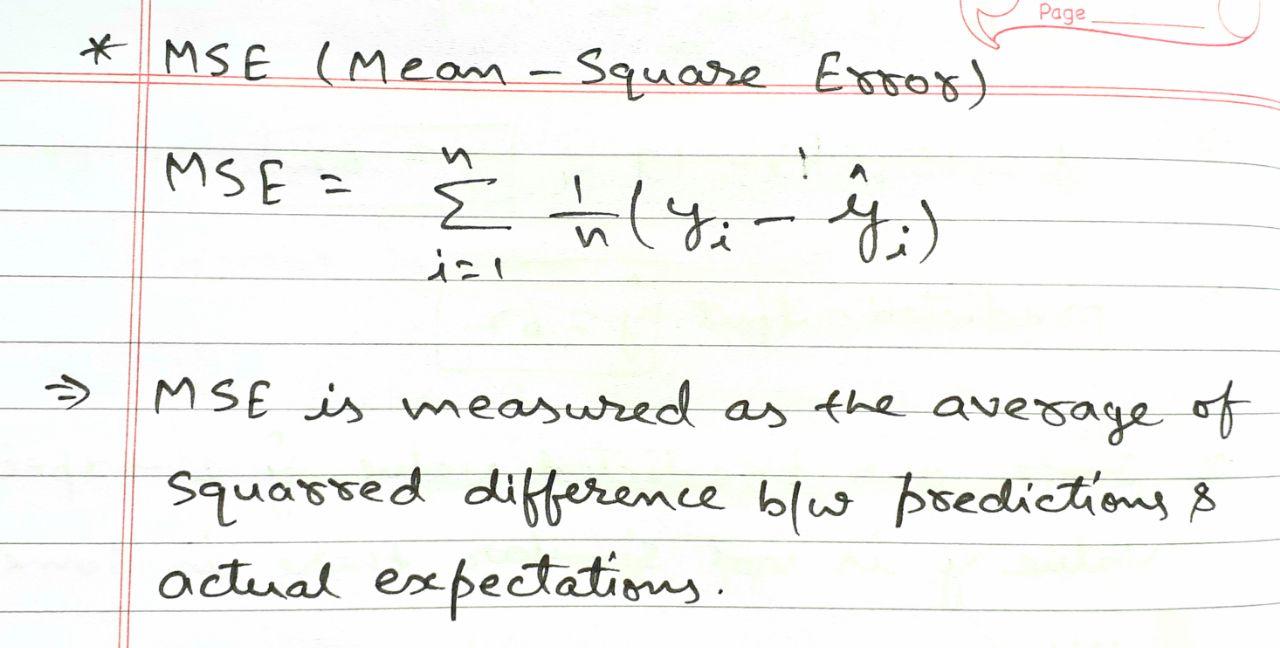 Page
* MSE (Mean - Square Error)
MSE = n ∑ i=1 1/n (yᵢ - ŷᵢ)
⇒ MSE is measured as the average of
squarred difference b/w predictions &
actual expectations.